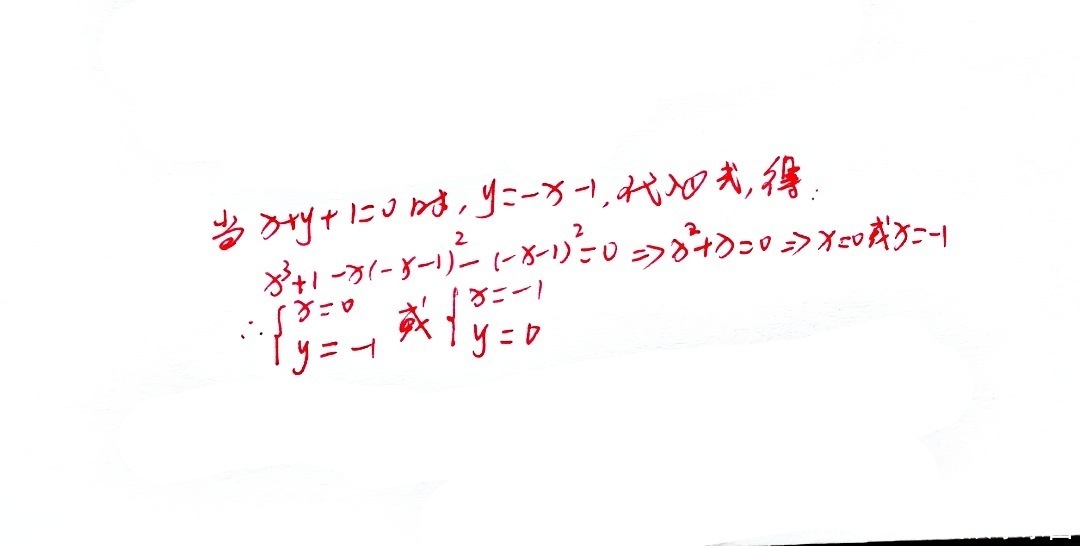 当 x+y+1=0 时, y=-x-1, 代入①式, 得:
x³+1-x(-x-1)²-(-x-1)²=0 ⇒ x²+x=0 ⇒ x=0或x=-1
∴ { x=0 或 { x=-1
y=-1 y=0